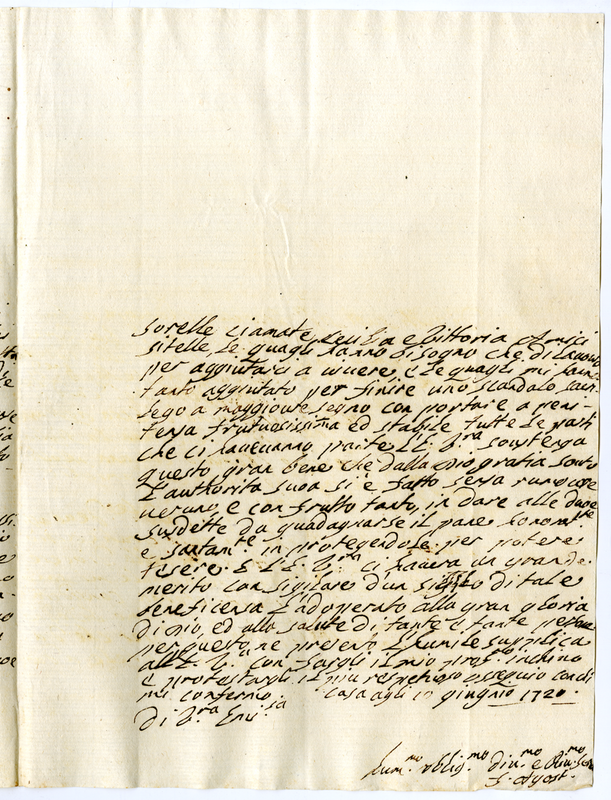 sorelle ciamate Cecilia e Vittoria Amici
sitelle, le quagli hanno bisogno che di lavoro
per aggiutarci a vivere, e le quagli mi han
tanto aggiutato per finire uno scandalo sacri
lego a maggiore segno con portare a peni-
tensa frutuosissima ed stabile tutte le parti
che ci haveuano parte L'E. V.ra sostenga
questo gran bene che dalla Dio gratia sotto
L'authorita sua si è fatto sensa rumore
ueruno, e con frutto tanto, in dare alle due
suddette da guadagnarse il pane honor.te
e santam.te in protegendole per potere
tesere E L'E. V.ra ci havera un grande
merito con sigilare d'un sigillo di tale
beneficensa L'adoperato alla gran gloria
di Dio, ed alla salute di tante e tante persone
per questo ne presento L'humile supplica
all'E. V. con fargli il mio prof.o inchino
e protestargli il piu respetuoso ossequio con di
mi confermo. Casa agli 10 giugnio 1720.
Di V.ra Em.sa
hum.mo oblig.mo diu.mo e Seru.